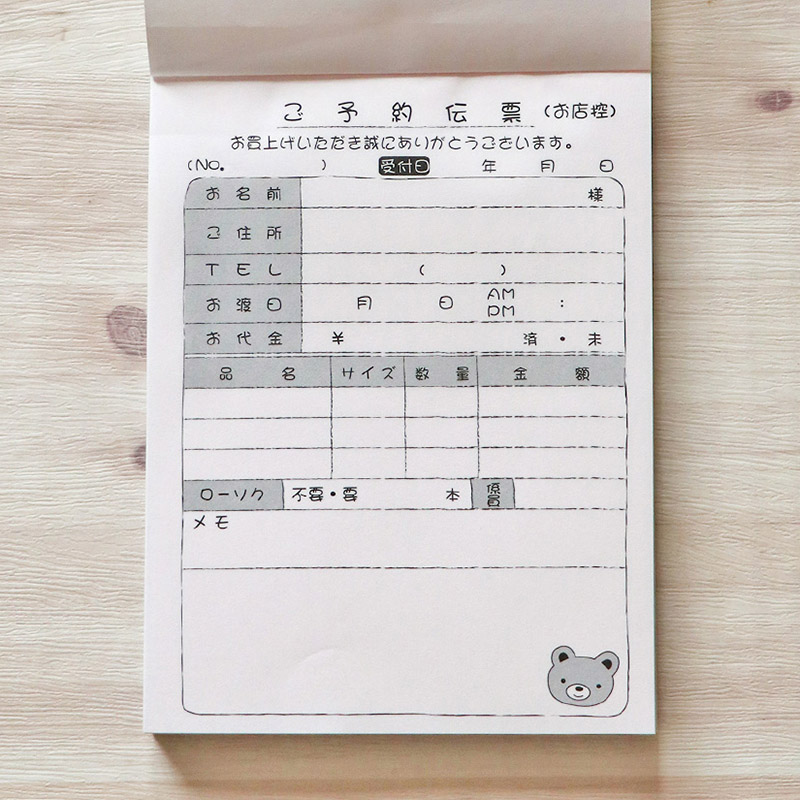 ご予約伝票 (お店控)
お買上げいただき誠にありがとうございます。
(No. ) 受付日 年 月 日
お名前 様
ご住所
TEL ( )
お渡日 月 日 AM PM :
お代金 ¥ 済・未
品名 サイズ 数量 金額
ローソク 不要・要 本 係員
メモ